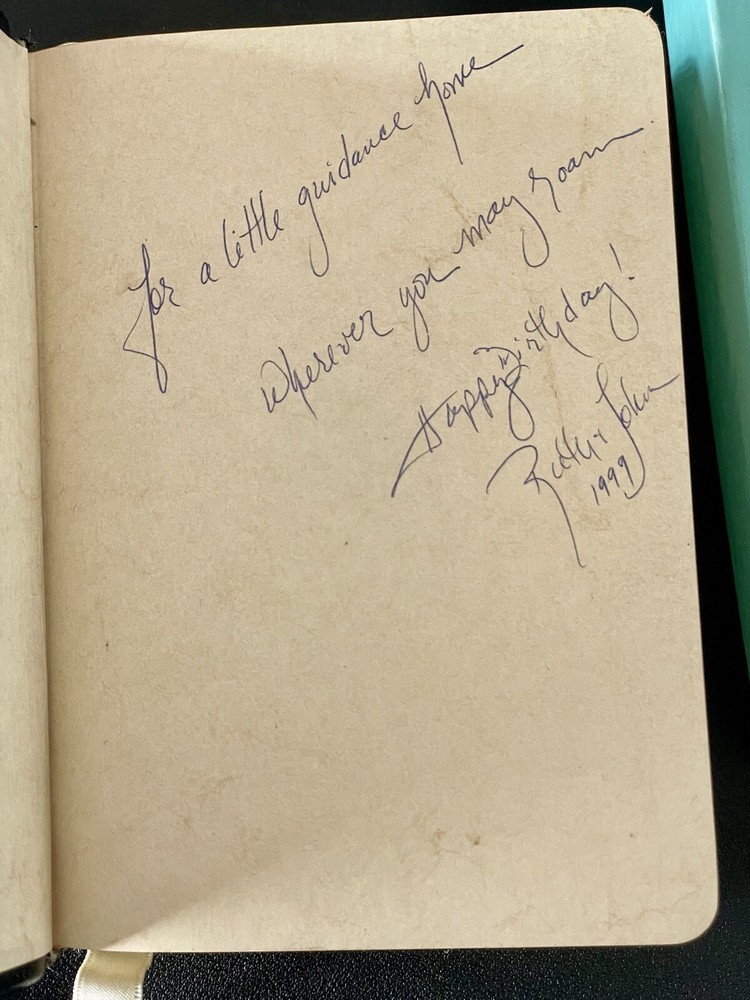 for a little guidance home
wherever you may roam
Happy Birthday!
Ruth + John
1999